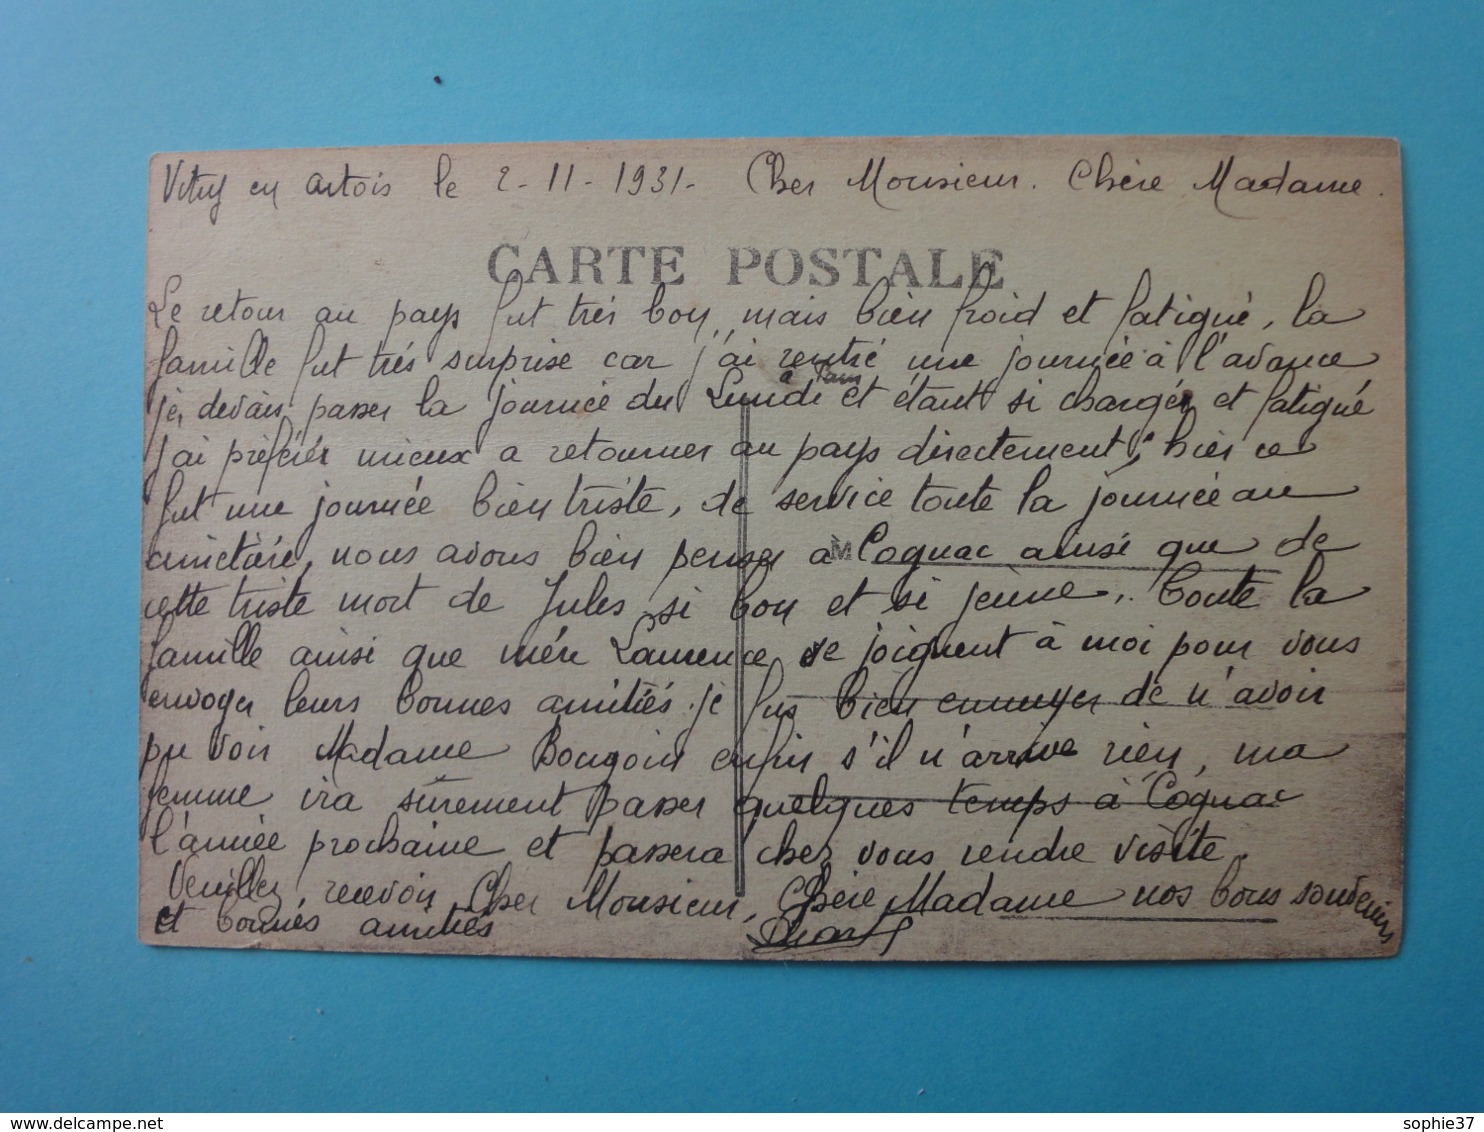 Vitry en artois le 2-11-1931- Cher Monsieur. Chère Madame.
CARTE POSTALE
Le retour au pays fut très bon, mais bien froid et fatigué, la
famille fut très surprise car j'ai rentré une journée à l'avance
à Paris
je devais passer la journée du Lundi et étant si chargé et fatigué
j'ai préférér mieux a retourner au pays directement, hier ce
fut une journée bien triste, de service toute la journée au
cimetière, nous avons bien penser a Cognac ainsi que de
M
cette triste mort de Jules si bon et si jeune, Toute la
famille ainsi que mére Laurence se joignent à moi pour vous
envoyer leurs bonnes amitiés. je fus bien ennuyer de n'avoir
pu voir Madame Bougoin enfin s'il n'arrive rien, ma
femme ira sûrement passer quelques temps à Cognac
l'année prochaine et passera chez vous rendre visite.
Veuillez recevoir Cher Monsieur, Chère Madame nos bons souvenirs
et bonnes amitiés
sophie37